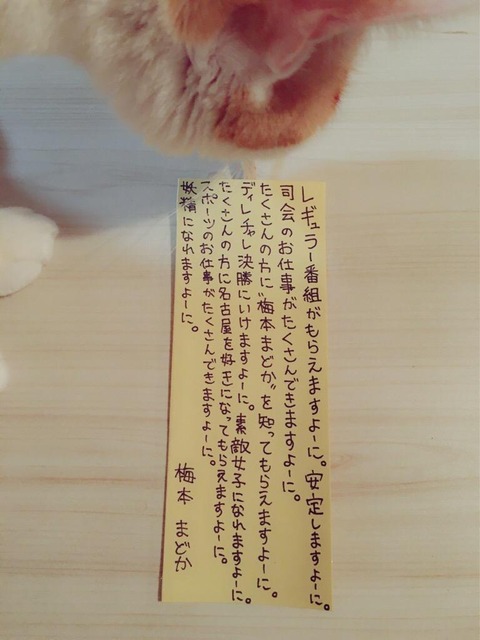 レギュラー番組がもらえますよーに。安定しますよーに。
司会のお仕事がたくさんできますよーに。
たくさんの方に"梅本まどか"を知ってもらえますよーに。
ディレチャレ決勝にいけますよーに。素敵女子になれますよーに。
たくさんの方に名古屋を好きになってもらえますよーに。
スポーツのお仕事がたくさんできますよーに。
妖精になれますよーに。
梅本 まどか